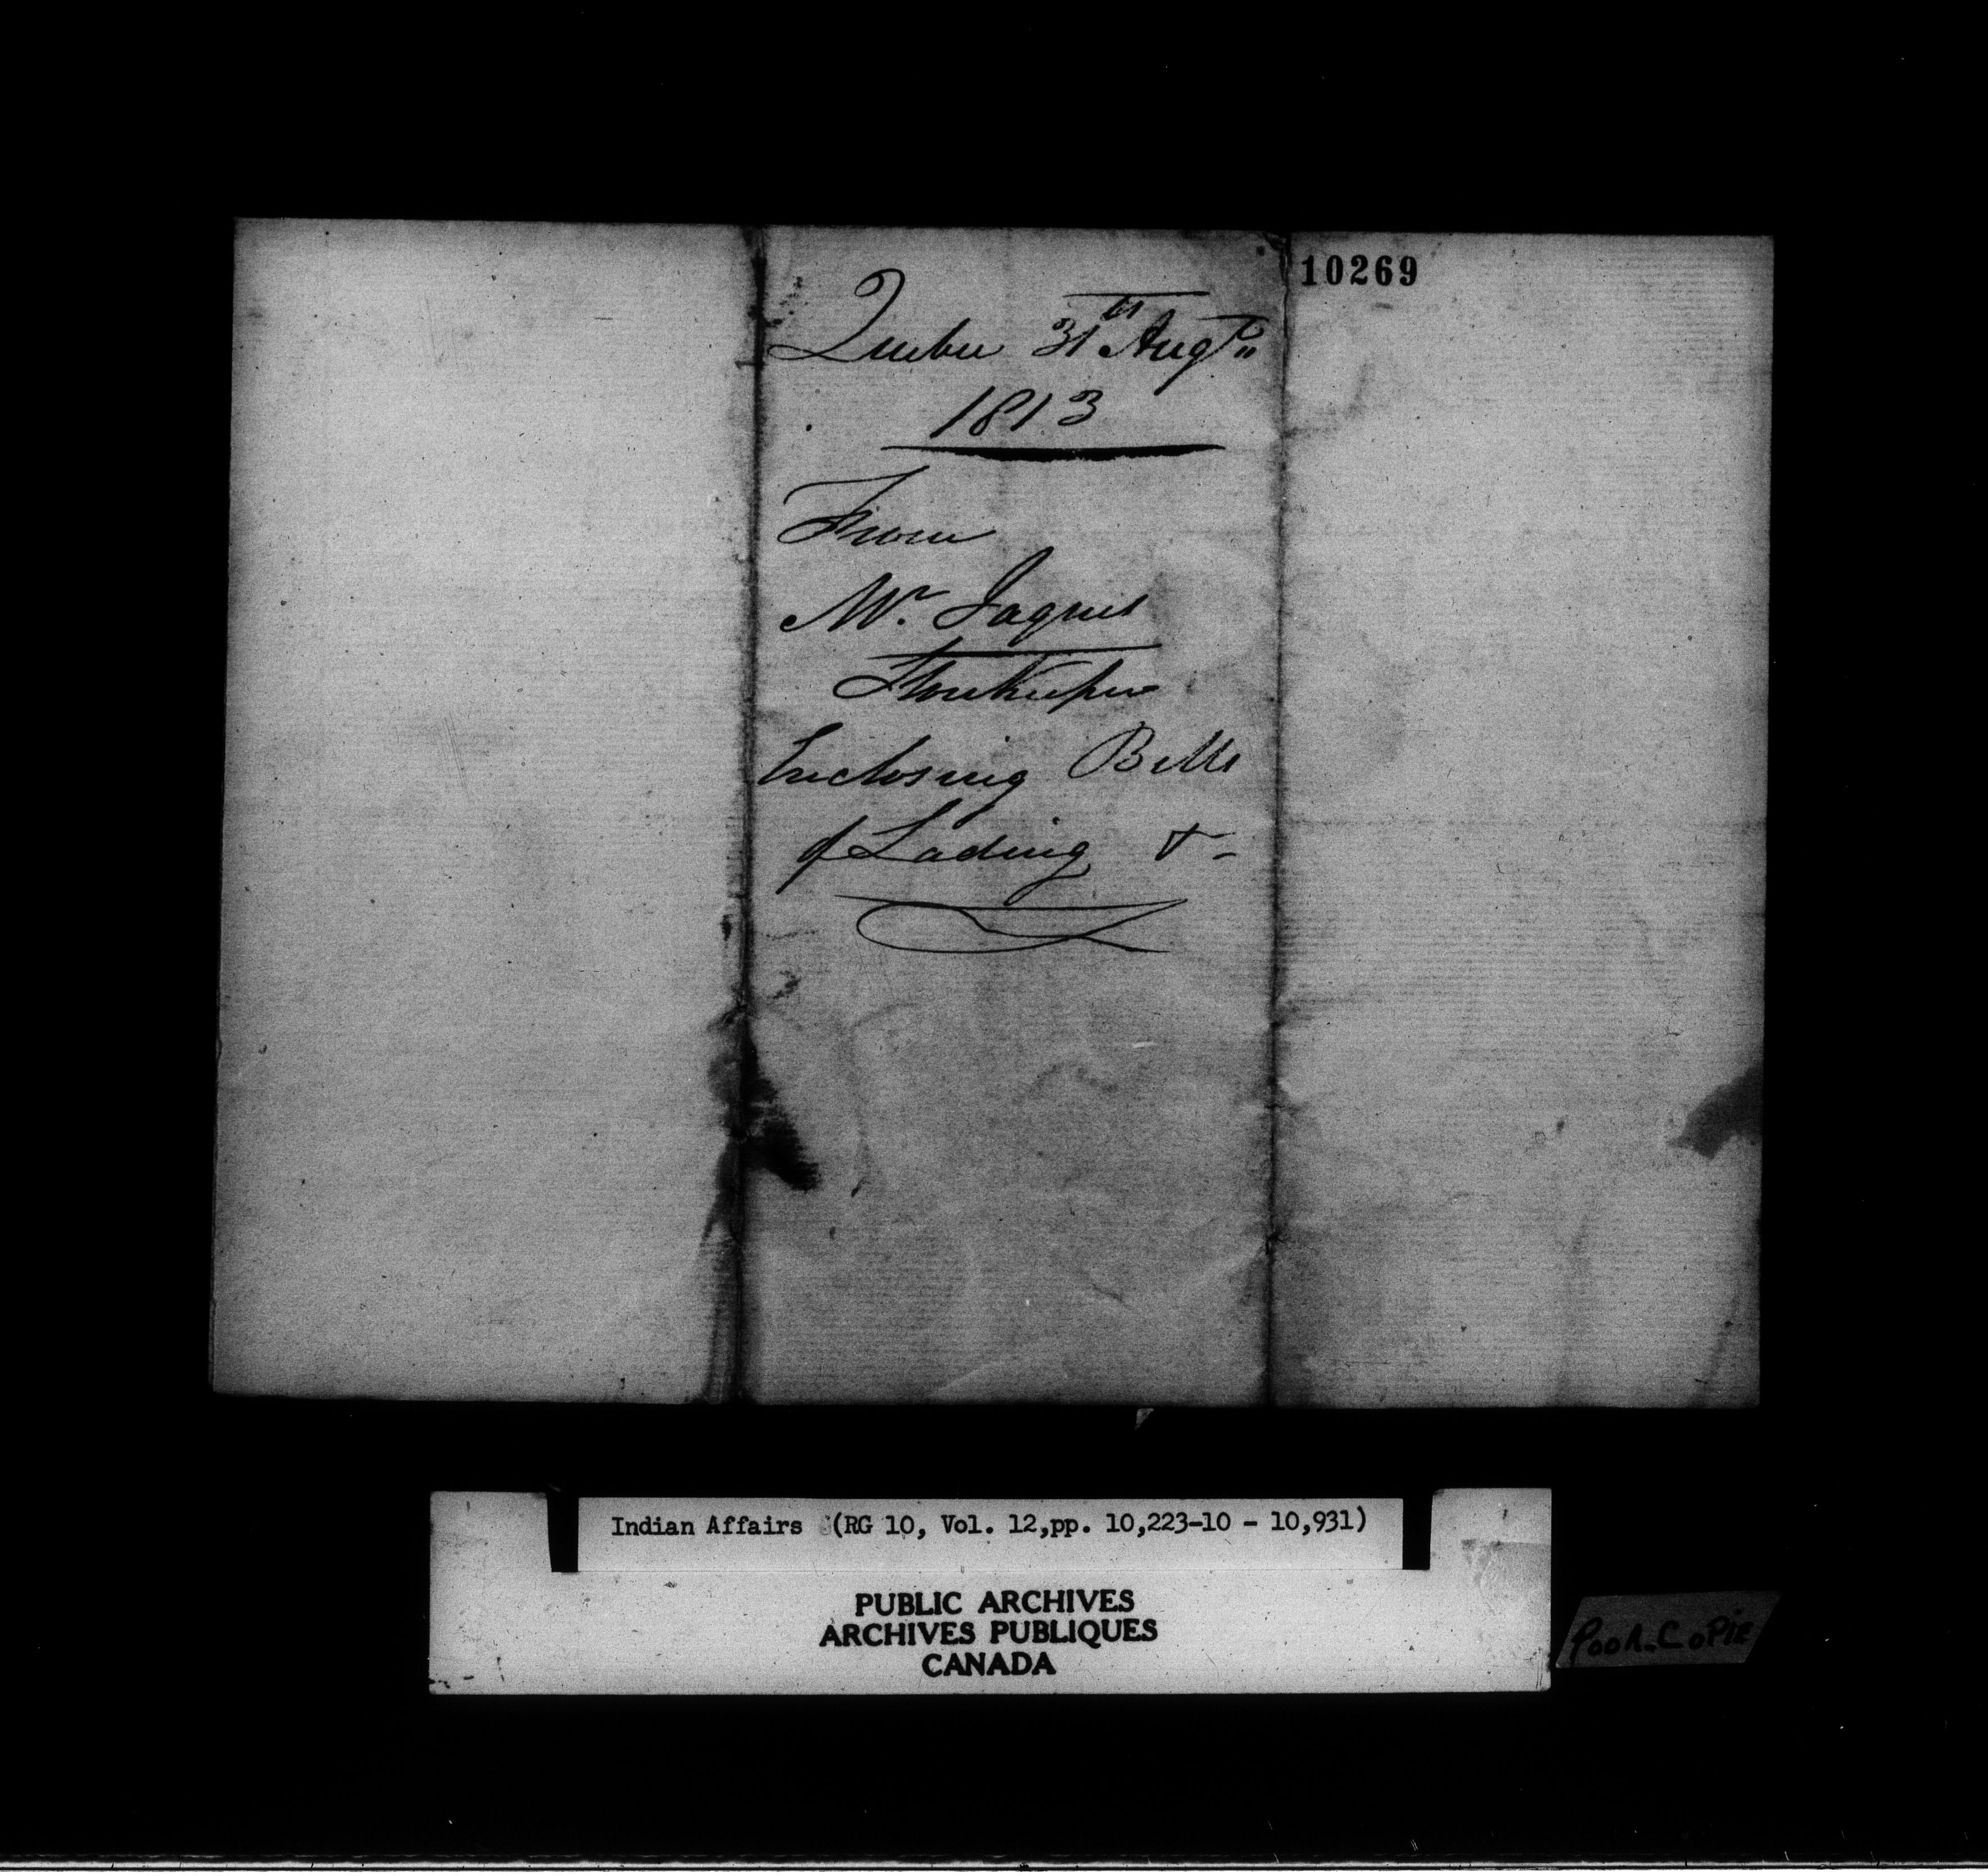 10269
Quebec 31st Augt
1813
From
Mr. Jaques
Storekeeper
Enclosing Bills
of Lading &-
Indian Affairs (RG 10, Vol. 12,pp. 10,223-10 - 10,931)
PUBLIC ARCHIVES
ARCHIVES PUBLIQUES
CANADA
POOR-COPIE